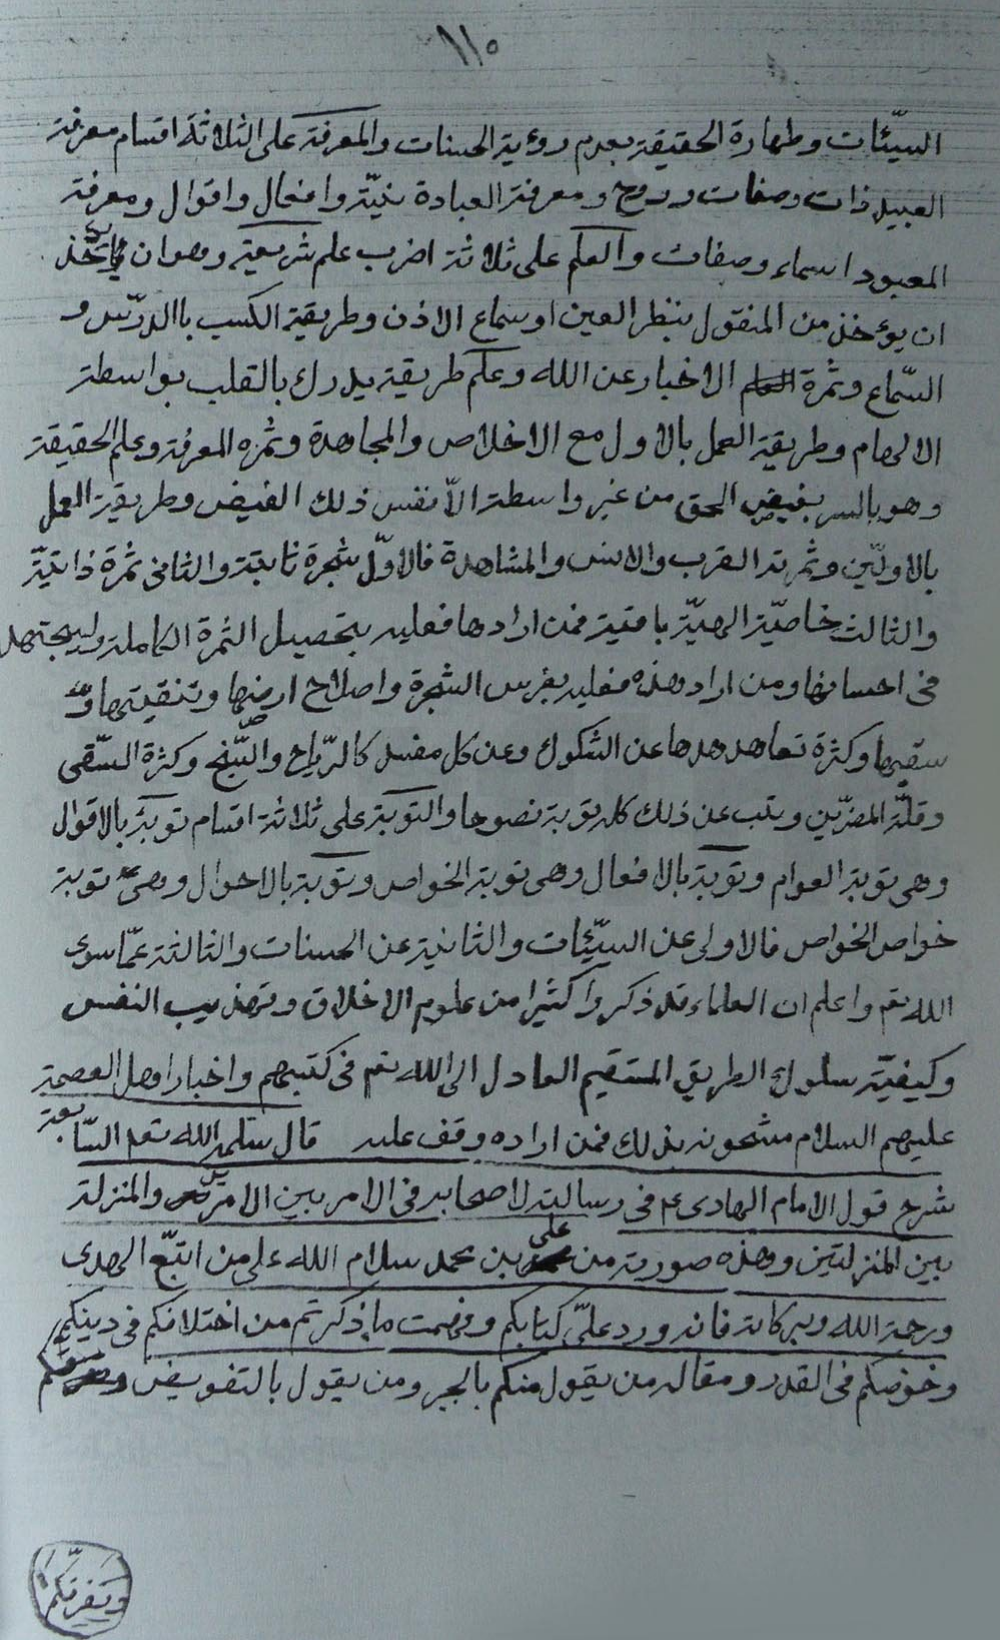 ١١٥
السيّئات وطهارة الحقيقة بعدم روءية الحسنات والمعرفة على الثلاثة اقسام معرفة
العبيد ذات وصفات وروح ومعرفة العبادة بنيّة وافعال واقوال ومعرفة
المعبود اسماء وصفات والعلم على ثلاثة اضرب علم شريعة وهو ان
ان يؤخذ من المنقول بنظر العين او سماع الاذن وطريقة الكسب باالدرّس و
السّماع وثمرة الاخبار عن الله وعلم طريقة يدرك بالقلب بواسطة
الالهام وطريقة العمل بالاول مع الاخلاص والمجاهدة وثمره المعرفة وعلم الحقيقة
وهو بالسر بفيض الحق من غير واسطة الاّ نفس ذلك الفيض وطريقة العمل
بالاوليّن وثمرته القرب والانس والمشاهدة فالاوّل شجرة نابتة والثانى ثمرة ذاتيّة
والثالث خاصيّة الهيّة باقية فمن ارادها فعليه بتحصيل الثمرة الكاملة وليجتهد
فى احسانها ومن اراد هذه فعليه بغرس الشجرة واصلاح ارضها وتنقيتها و
سقيها وكثرة تعاهدها عن الشكوك وعن كل مفسد كالرّياح وكثرة السّقى
وقلّة المضرّين وتب عن ذلك كله توبة نصوحا والتوبة على ثلاثة اقسام توبة بالاقوال
وهى توبة العوام وتوبة بالافعال وهى توبة الخواص وتوبة بالاحوال وهى توبة
خواص الخواص فالاولى عن السيّئات والثانية عن الحسنات والثالثة عمّا سوى
الله تعم واعلم ان العلماء قد ذكروا كثيرا من علوم الاخلاق وتهذيب النفس
وكيفيّة سلوك الطريق المستقيم العادل الى الله تعم فى كتبهم واخبار اهل العصمة
عليهم السلام مشحونه بذلك فمن اراده وقف عليه قال سلمه الله تعم السّابعة
شرح قول الامام الهادى ع فى رسالته لاصحابه فى الامر بين الامرين والمنزلة
بين المنزلتين وهذه صورته من على بن محمد سلام الله على من اتبّع الهدى
ورحمة الله وبركاته فانه ورد علىّ كتابكم وفهمت ما ذكرتم من اختلافكم فى دينكم
وخوضكم فى القدر ومقاله من يقول منكم بالجبر ومن يقول بالتفويض
وتفرقكم